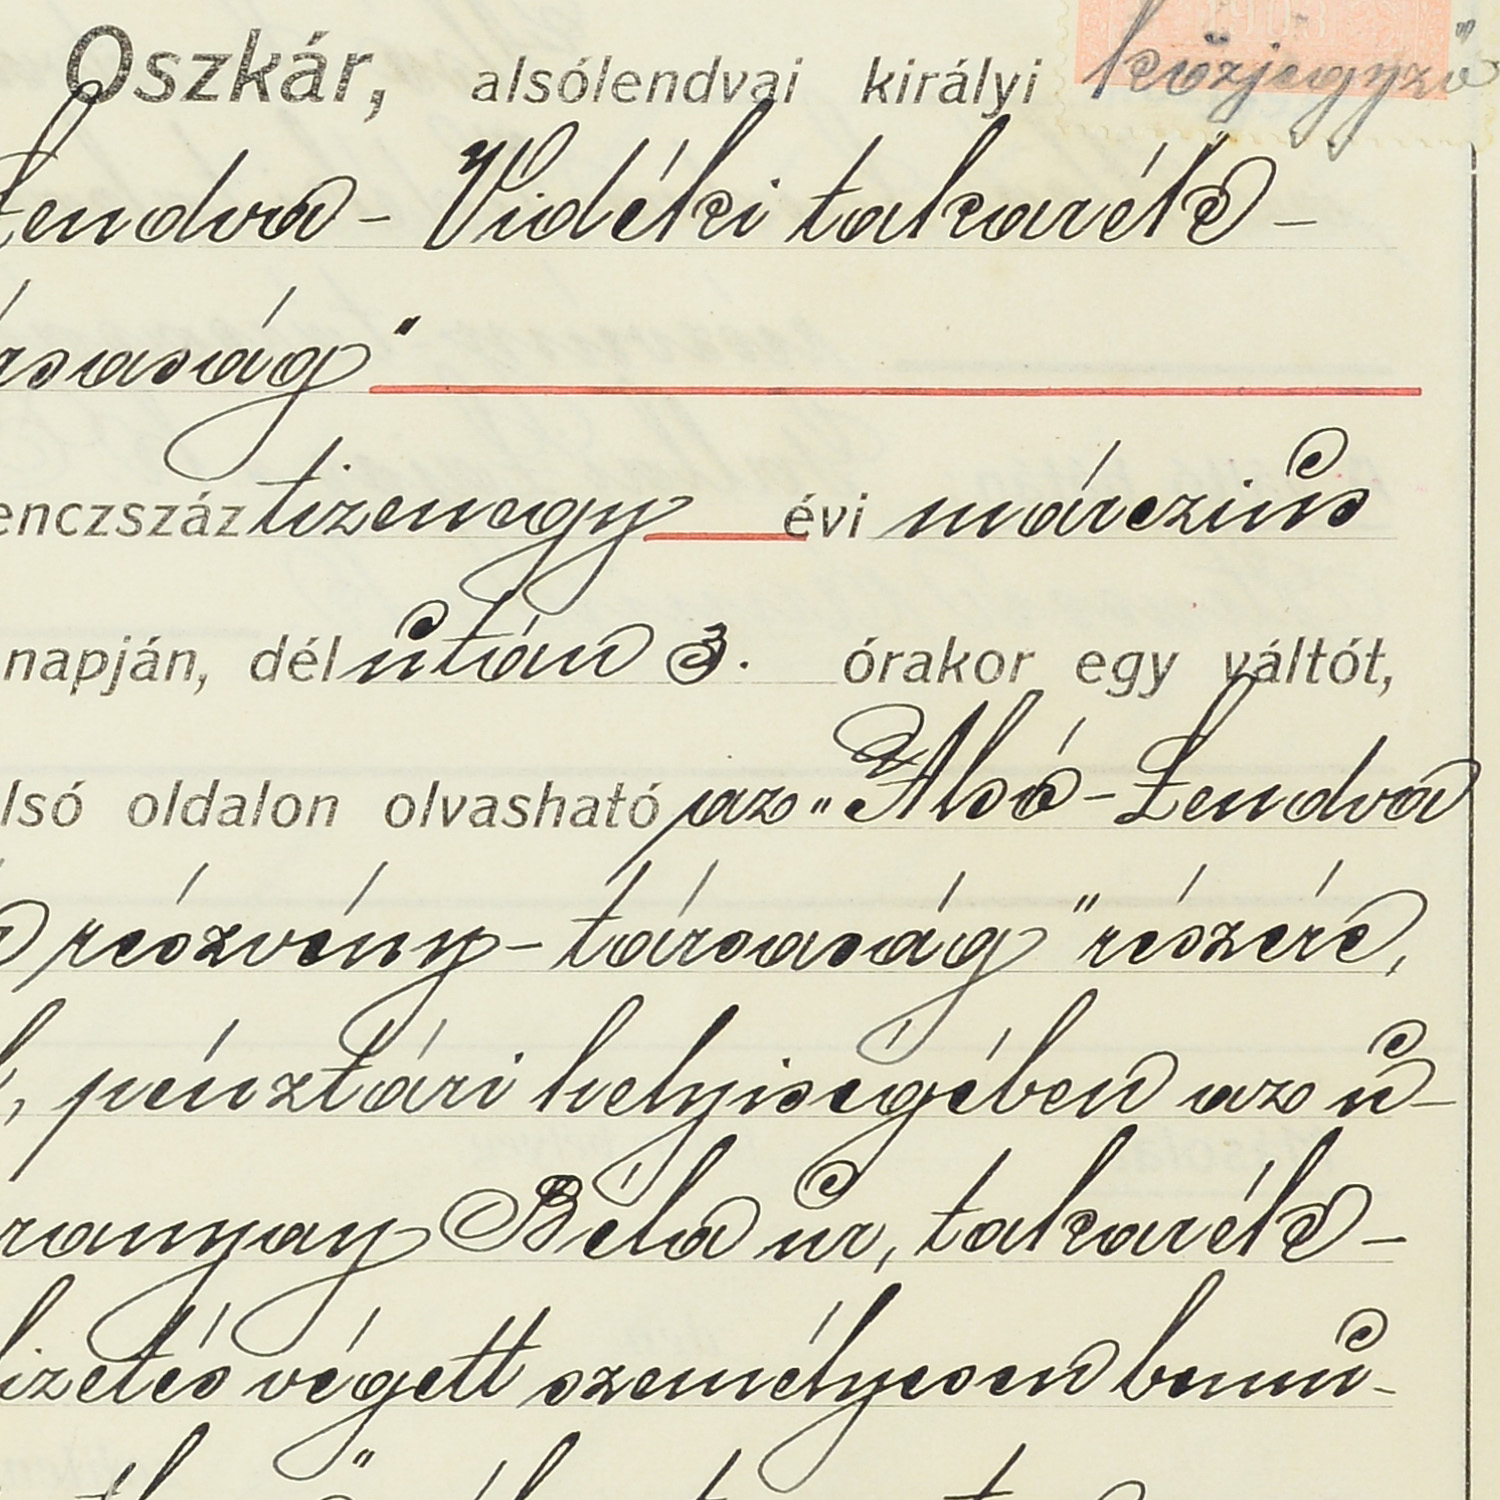 Oszkár, alsólendvai királyi közjegyző
Lendva - Vidéki takarék-
rsaság"
enczszáz tizenegy évi márczius
napján, délután 3. órakor egy váltót,
lsó oldalon olvasható az „Alsó-Lendva
részvény-társaság" részére,
pénztári helyiségében az u-
ranyay Béla úr, takarék-
izetés végett személyesen bemu-